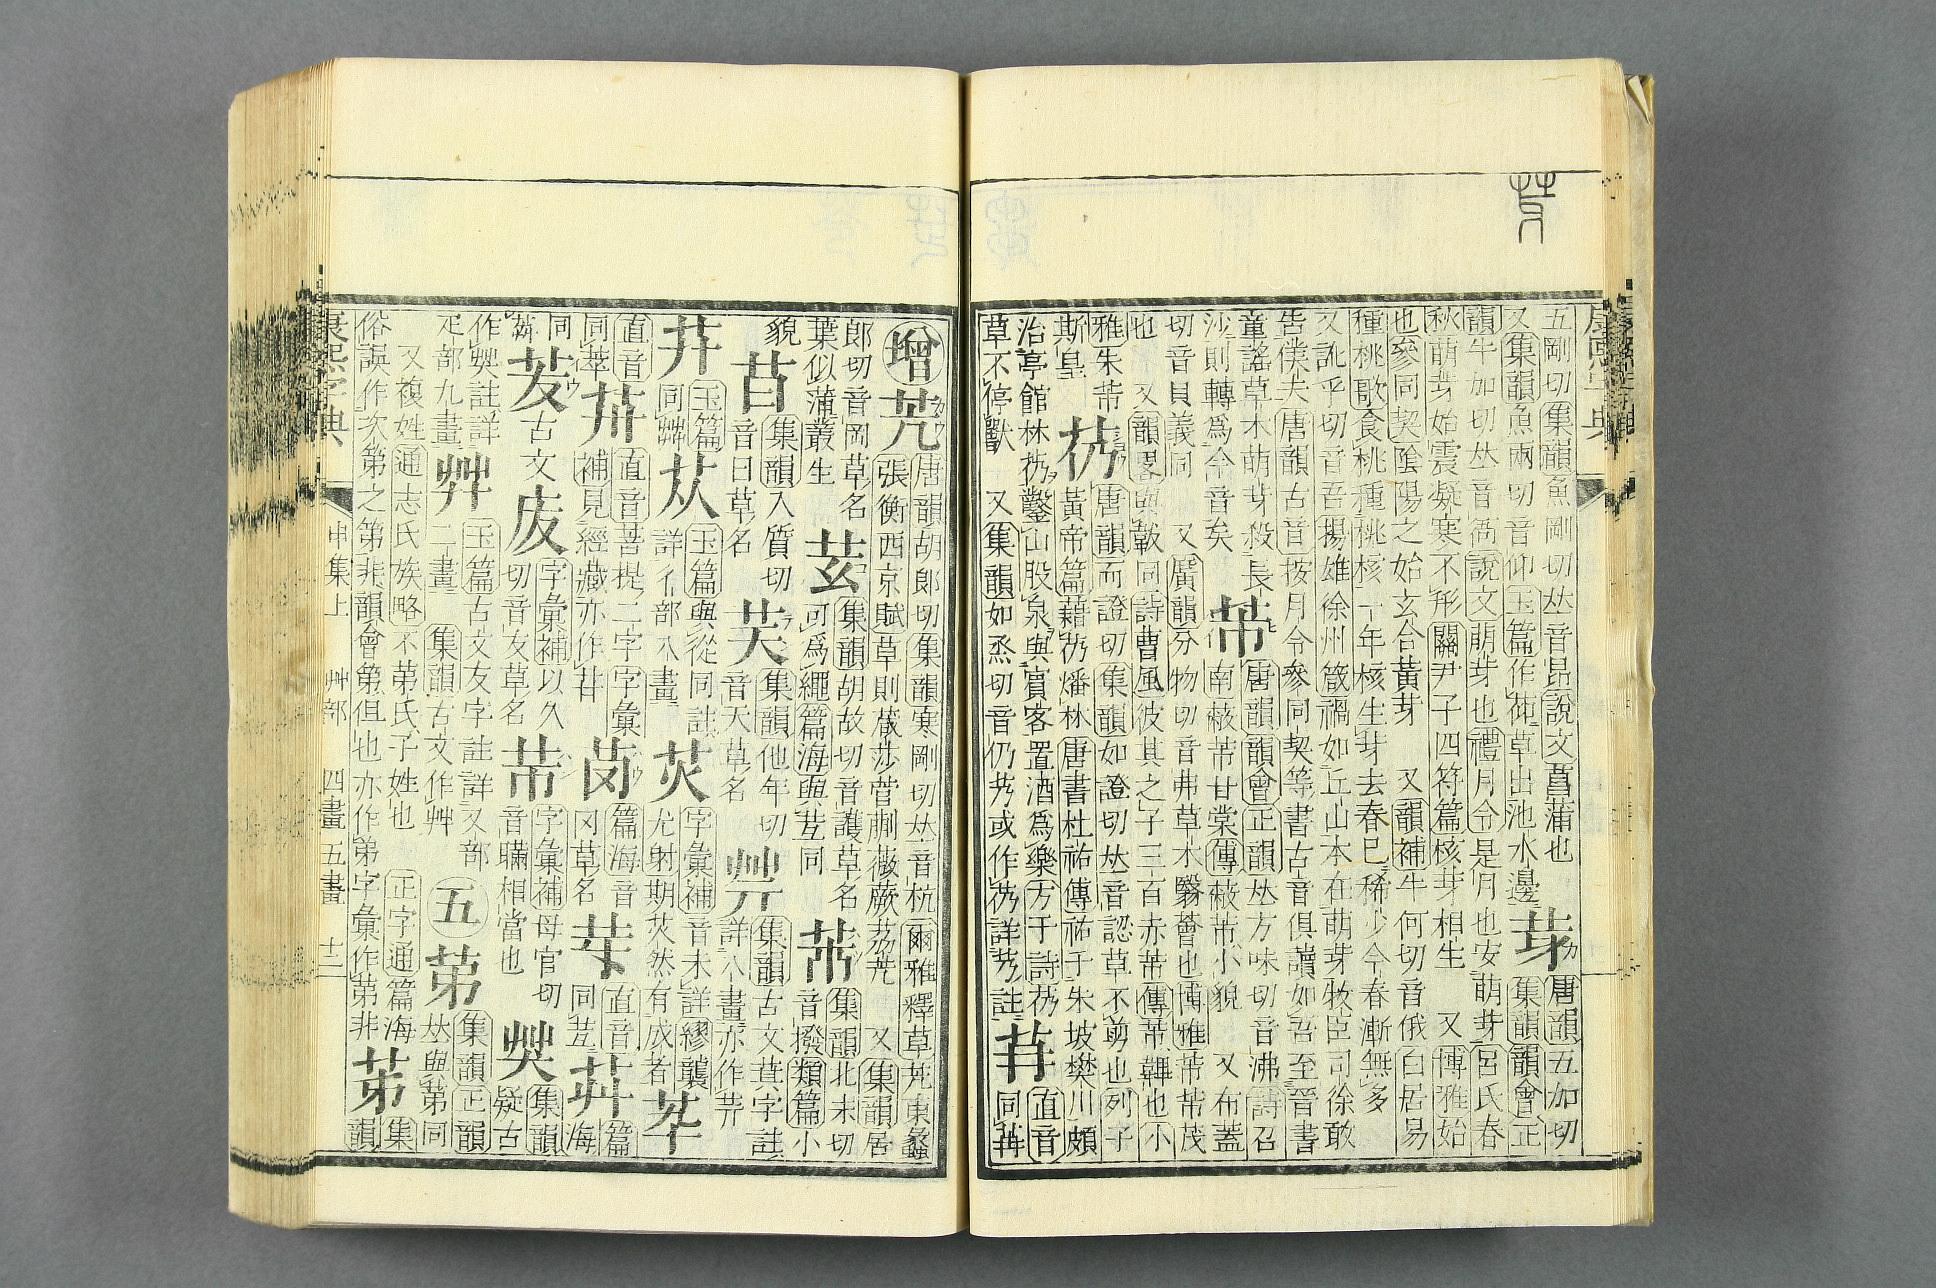 五剛切集韻魚剛切𠀤音昂說文菖蒲也
又集韻魚兩切音仰玉篇作茚草出池水邊
芽
唐韻五加切集韻韻會正
韻牛加切𠀤音衙說文萌芽也禮月令是月也安萌芽呂氏春
秋萌芽始震凝寒不形關尹子四符篇核芽相生 又博雅始
也參同契陰陽之始玄含黃芽 又韻補牛何切音俄白居易
種桃歌食桃種桃核一年核生芽去春已稀少今春漸無多
又訛乎切音吾揚雄徐州箴禍如丘山本在萌芽牧臣司徐敢
告僕夫唐韻古音按月令參同契等書古音俱讀如吾至晉書
童謠草木萌芽殺長
沙則轉爲今音矣
芾
唐韻韻會正韻𠀤方味切音沸詩召
南蔽芾甘棠傳蔽芾小貌 又布蓋
切音貝義同 又廣韻分物切音弗草木翳薈也博雅芾芾茂
也 又韻畧與韍同詩曹風彼其之子三百赤芾傳芾韠也小
雅朱芾
斯皇
芿
唐韻而證切集韻如證切𠀤音認草不剪也列子
黃帝篇藉芿燔林唐書杜祐傳祐于朱坡樊川頗
治亭館林芿鑿山股泉與賓客置酒爲樂方干詩芿
草不停獸 又集韻如烝切音仍艿或作芿詳艿註
苒
直音
同苒
增
芫
唐韻胡郎切集韻寒剛切𠀤音杭爾雅釋草芫東蠡
張衡西京賦草則葴莎菅蒯薇蕨荔芫 又集韻居
郎切音岡草名
葉似蒲叢生
芸
集韻胡故切音護草名
可爲繩篇海與苙同
芾
集韻北末切
音撥類篇小
貌
苜
集韻入質切
音日草名
芺
集韻他年切
音天草名
艸
集韻古文草字註
詳八畫亦作芔
井
玉篇
同艸
苁
玉篇與從同註
詳彳部八畫
芡
字彙補音未詳繆襲
尤射期芡然有成者
芣
直音
同莖
茾
直音菩提二字字彙
補見經藏亦作茾
茵
篇海音
冈草名
芓
直音
同芏
茻
篇
海
同
茻
苃
古
文
庋
字彙補以久
切音友草名
芇
字彙補母官切
音瞞相當也
䒑
集韻
疑古
作䒑註詳
疋部九畫
艸
玉篇古文友字註詳又部
二畫 集韻古文作艸
五
苐
集韻正韻
𠀤與第同
又複姓通志氏族略不苐氏子姓也 正字通篇海
俗誤作次第之第非韻會第但也亦作苐字彙作苐非
茀
集
韻
康熙字典
申集上 艸部 四畫 五畫 十二